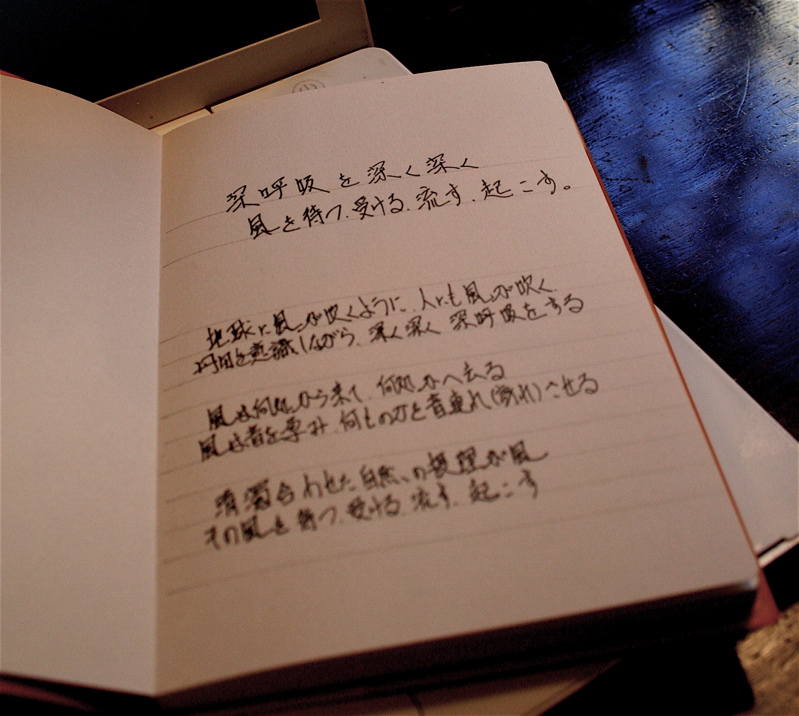 深呼吸を深く深く
風を待つ、受ける、流す、起こす。
地球に風が吹くように、人にも風が吹く
丹田を意識しながら、深く深く深呼吸をする
風は何処から来て、何処かへ去る
風は音を
清濁合わせた自然の摂理が風
その風を待つ、受ける、流す、起こす